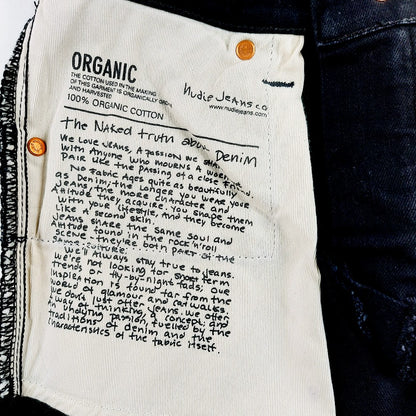 ORGANIC
THE COTTON USED IN THE MAKING
OF THIS GARMENT IS ORGANICALLY GROWN
AND HARVESTED
100% ORGANIC COTTON
Nudie Jeans co
www.nudiejeans.com
The Naked truth about Denim
We love jeans, A passion we share
with Anyone who mourns A worn out
pair like the passing of a close friend.
No fabric Ages quite as beautifully
as Denim, the longer you wear your
Jeans the more character and
Attitude they acquire. You shape them
with your lifestyle, and they become
like a second skin.
Jeans share the same soul and
Attitude found in the rock'n'roll
scene, they're both part of the
same culture.
We'll always stay true to jeans.
We're not looking for short term
trends or fly-by-night fads; our
inspiration is found far from the
world of glamour and catwalks
We don't just offer jeans. We offer
a way of thinking, a concept, and
an undying passion, fuelled by the
traditions of denim and the
characteristics of the fabric itself.